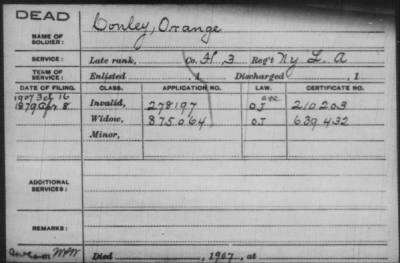 DEAD
NAME OF SOLDIER: Conley, Orange
SERVICE: Late rank, Co. H. 3 Reg't N.y L. A
TERM OF SERVICE: Enlisted , 1 Discharged , 1
DATE OF FILING. CLASS. APPLICATION NO. LAW. CERTIFICATE NO.
1879 Apr 8 Invalid, 278197 OJ 210203
1907 16 Widow, 875.064 OJ 639.432
Minor,
ADDITIONAL SERVICES:
REMARKS:
Died , 1907, at